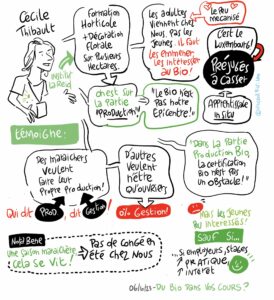 Cécile
Thibault
Institut
La Reid
Formation
Horticole
+ Décoration
Florale
Sur Plusieurs
Hectares.
Les adultes
viennent chez
Nous, Pas les
Jeunes, il faut
les emmener,
les intéresser
au Bio!
→ Le Peu
Mécanisé
C'est le
Luxembourg!
Préjugés
à Casser
Apprentissage
in situ
on est sur
la Partie
"PRODuction"!
"Le Bio n'est
Pas notre
Épicentre!"
Témoigne:
Des maraîchers
veulent
faire leur
Propre Production!
D'autres
veulent
n'être
qu'ouvriers
"Dans la Partie
Production Bio,
la certification
Bio n'est Pas
un obstacle!"
Qui dit PROD. dit Gestion
0% Gestion!
Mais les Jeunes
Peu intéressés!
Sauf Si...
Si employeurs, stages
PRATIQUE,
intérêt
Nota Bene
une saison maraîchère
Cela se Vit!
Pas de congé en
été chez Nous
- Du Bio Dans Vos Cours?